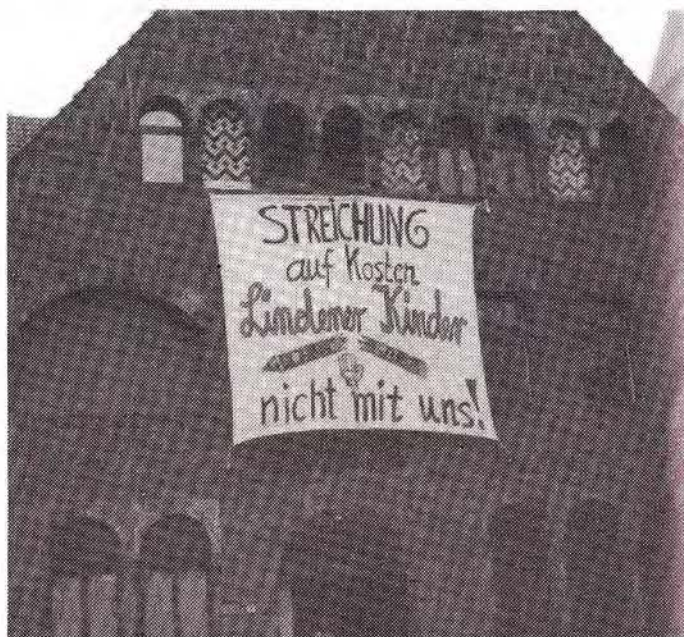 STREICHUNG
auf Kosten
Lindener Kinder
nicht mit uns!